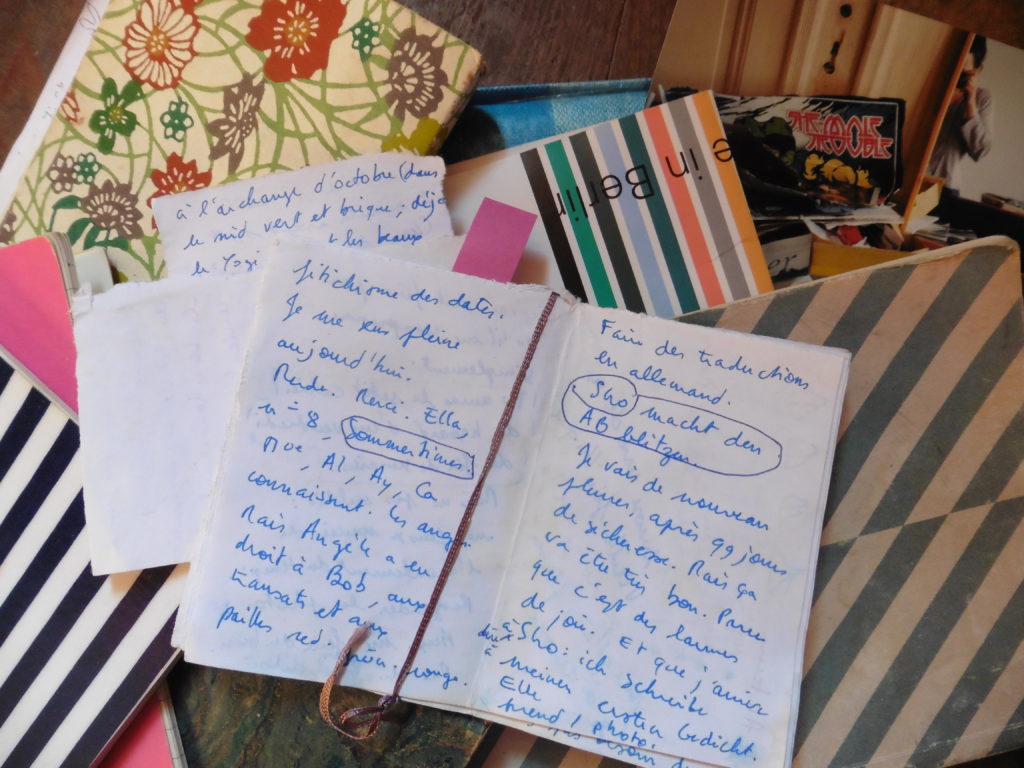 à l'archange d'octobre (dans
le nid vert et brique ; déjà
& les beaux
le Yogi
fétichisme des dates.
Je me sens pleine
aujourd'hui.
Merde. Merci. Ella,
n = 8, Sommertimes.
Moe, Al, Ay, Ca
connaissent. Les anges
Mais Angèle a eu
droit à Bob, aux
transats et aux
pailles red. rouge.
Faire des traductions
en allemand.
Sho macht den
AB blitzen.
Je vais de nouveau
pleurer, après 99 jours
de sécheresse. Mais ça
va être très bon. Parce
que c'est des larmes
de joie. Et que j'aurai
dire à Sho : ich schreibe
à meinen ersten Gedicht.
Elle
trend, photo.
besoin d
e in Berlin